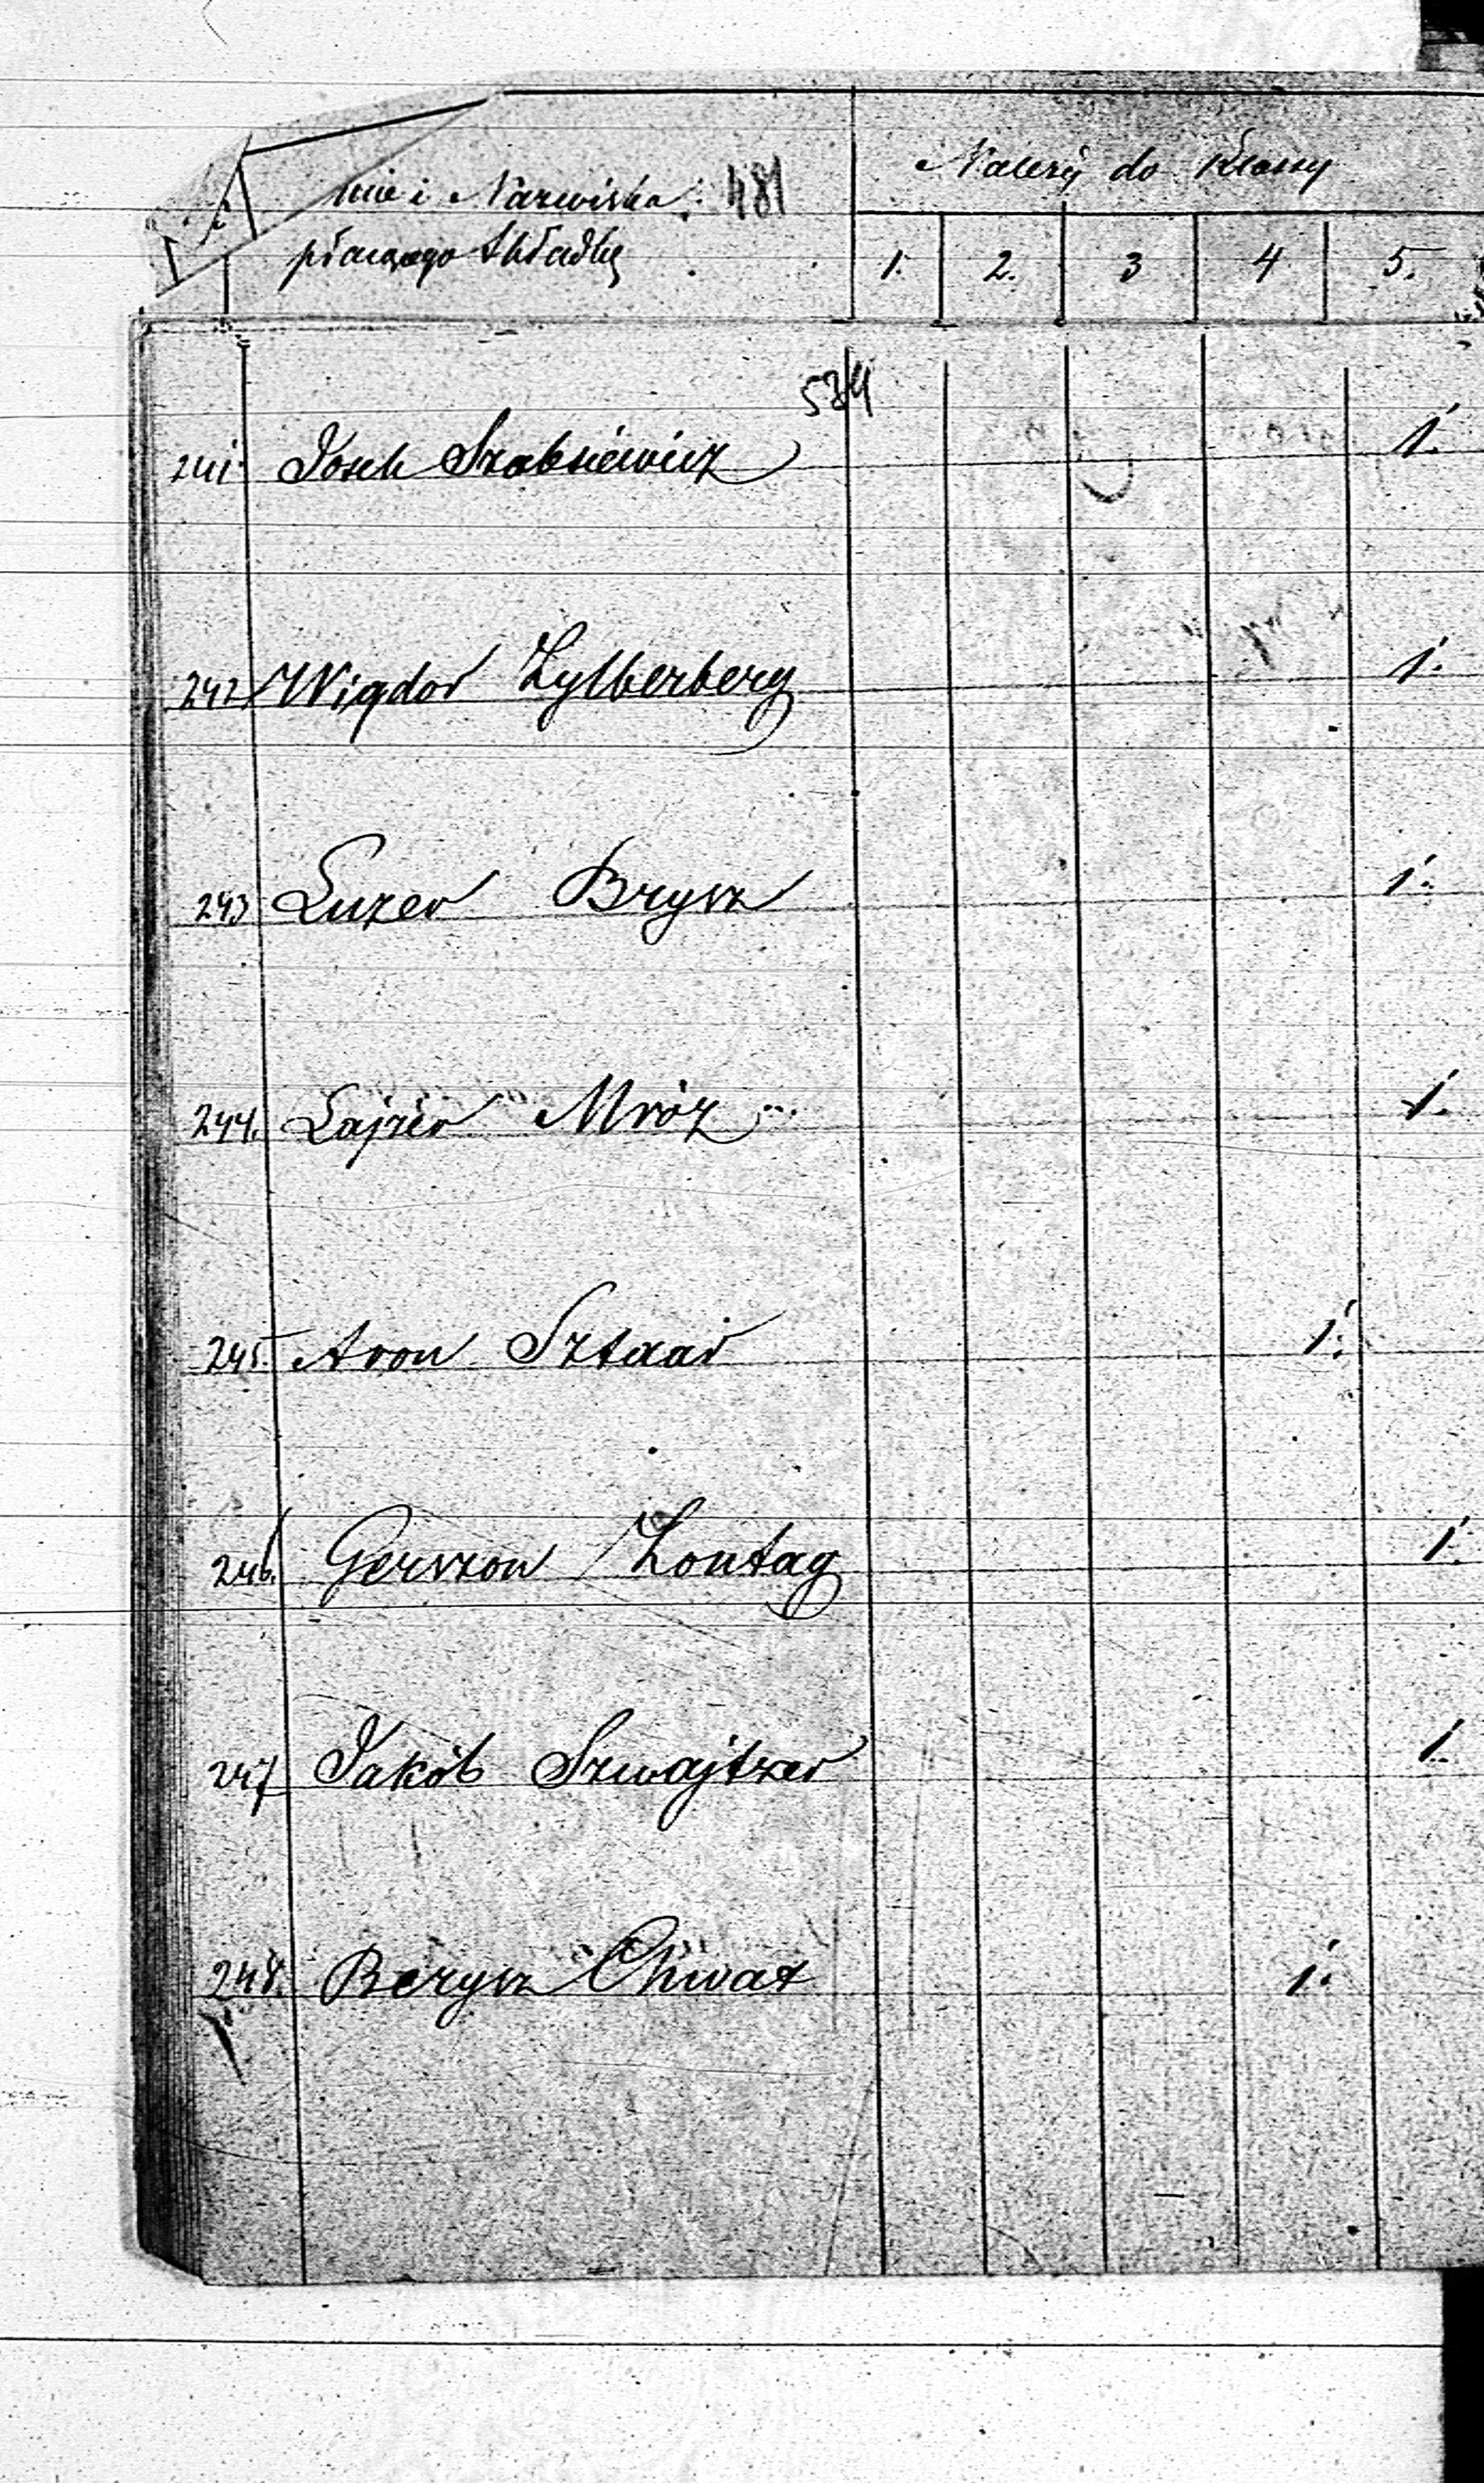 Imie i Nazwiska 481 Należy do Klassy
płacącego składkę 1. 2. 3 4 5.
584
241. Josek Szabsiewicz 1.
242 Wigdor Zylberberg 1.
243 Luzer Brysz 1.
244. Lajzer Mróz 1.
245. Aron Sztaar 1.
246. Gerszon Zontag 1.
247 Jakób Szwajtzer 1.
248. Berysz Chwat 1.